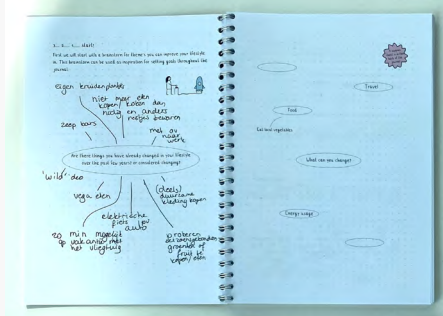 3... 2... 1... start!
First we will start with a brainstorm for theme's you can improve your lifestyle
in. This brainstorm can be used as inspiration for setting goals throughout the
journal.
eigen kruidenplantjes
niet meer eten
kopen/koken dan
nodig en anders
restjes bewaren
zeep bars
met ov
naar
werk
Are there things you have already changed in your lifestyle
over the past few years? or considered changing?
'wild' deo
vega eten
(deels)
duurzame
kleding kopen
elektrische
fiets ipv
auto
zo min mogelijk
op vakantie met
het vliegtuig
proberen
seizoensgebonden
groente of
fruit te
kopen/eten
Travel
Food
Eat local vegetables
What can you change?
Energy usage